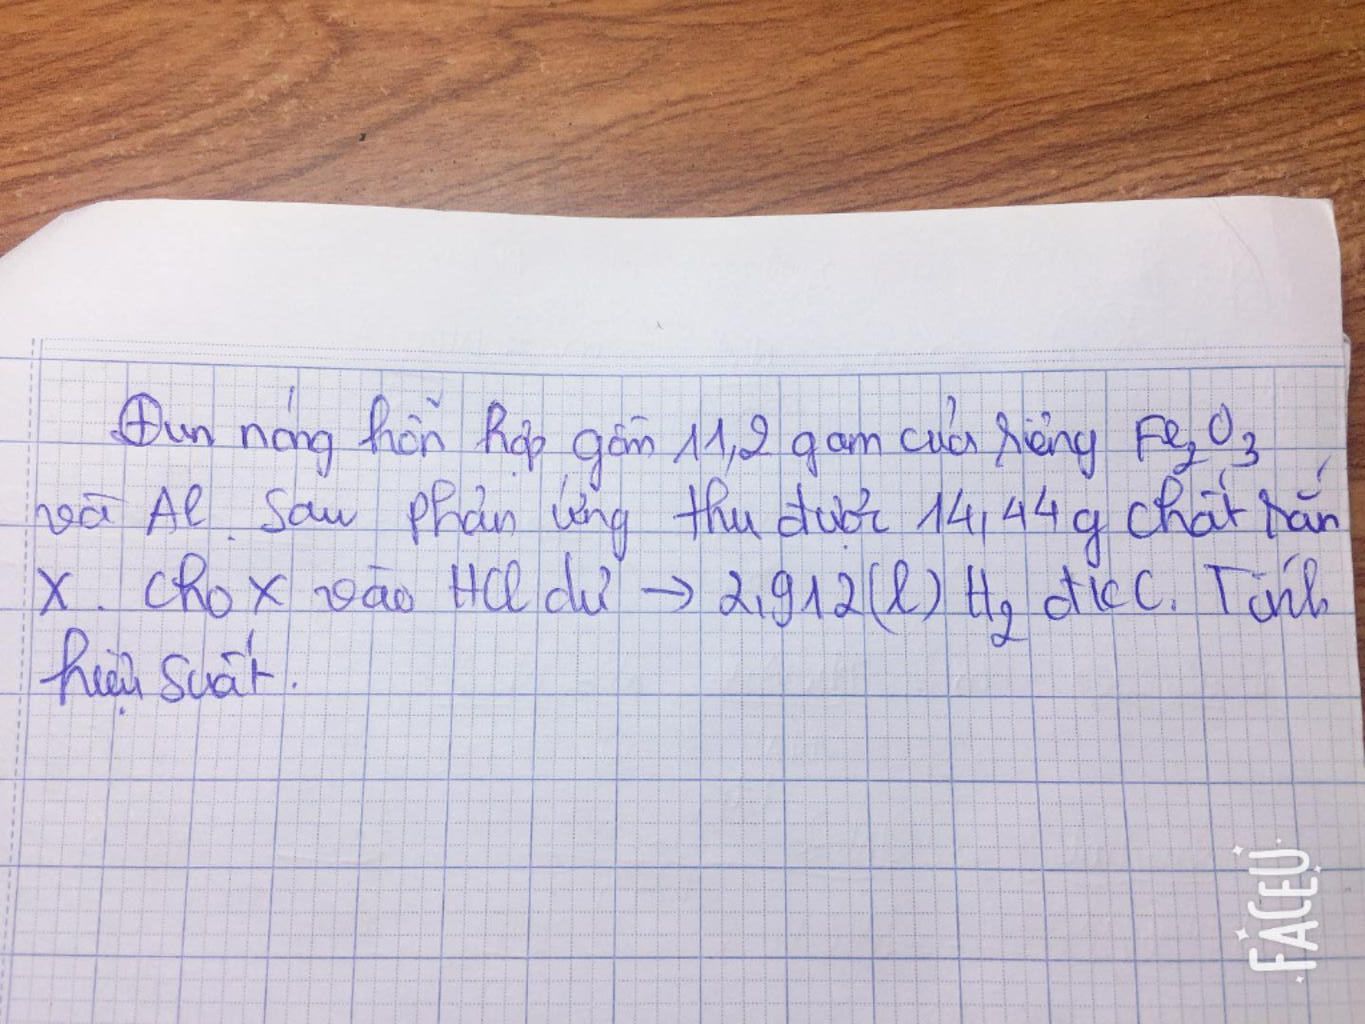 Đun nóng hỗn hợp gồm 11,2 gam của riêng Fe2O3
và Al. Sau phản ứng thu được 14,44g chất rắn
X. Cho X vào HCl dư → 2,912(l) H2 đkc. Tính
hiệu suất.
FACEU